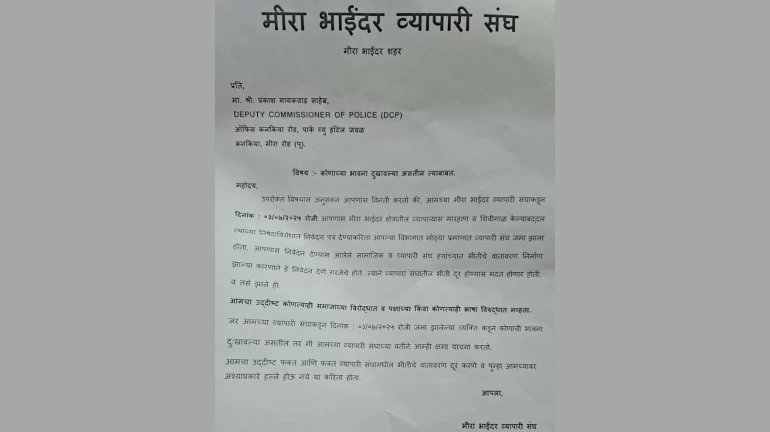 मीरा भाईंदर व्यापारी संघ
मीरा भाईंदर शहर
प्रति,
मा. श्री. प्रकाश गायकवाड साहेब,
DEPUTY COMMISSIONER OF POLICE (DCP)
ऑफिस कनकिया रोड, पार्क व्यु हॉटेल जवळ
कनकिया, मीरा रोड (पू).
विषय :- कोणाच्या भावना दुखावल्या असतील त्याबाबत.
महोदय,
उपरोक्त विषयास अनुसरून आपणांस विनंती करतो की, आमच्या मीरा भाईंदर व्यापारी संघाकडून
दिनांक : ०३/०७/२०२५ रोजी आपणास मीरा भाईंदर क्षेत्रातील व्यापाऱ्यास मारहाण व शिवीगाळ केल्याबद्दल
त्याच्या निषेदाविरोधात निवेदन पत्र देण्याकरिता आपल्या विभागात मोठ्या प्रमाणात व्यापारी संघ जमा झाला
होता. आपणास निवेदन देण्यास आलेले सामाजिक व व्यापारी संघ ह्यांच्यात भीतीचे वातावरण निर्माण
झाल्या कारणाने हे निवेदन देणे गरजेचे होते. त्याने व्यापारी संघातील भीती दूर होण्यास मदत होणार होती.
व तसे झाले ही.
आमचा उद्दीष्ट कोणत्याही समाजाच्या विरोधात व पक्षाच्या किंवा कोणत्याही भाषा विरुद्धात नव्हता.
जर आमच्या व्यापारी संघाकडून दिनांक : ०३/०७/२०२५ रोजी जमा झालेल्या व्यक्ति कडून कोणाची भावना
दु:खावल्या असतील तर मी आमच्या व्यापारी संघाच्या वतीने आम्ही क्षमा याचना करतो.
आमचा उद्दीष्ट फक्त आणि फक्त व्यापारी संघामधील भीतीचे वातावरण दूर करणे व पुन्हा आमच्यावर
अश्याप्रकारे हल्ले होऊ नये या करिता होता.
आपला,
मीरा भाईंदर व्यापारी संघ